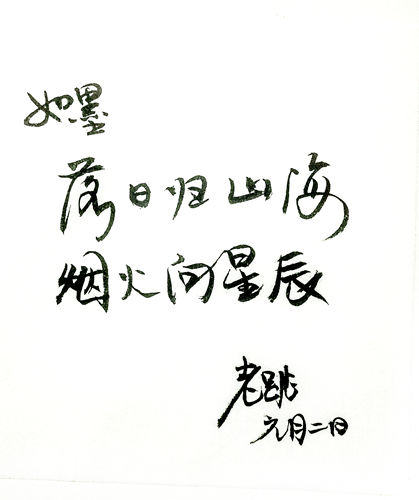 如墨
落日归山海
烟火向星辰
老跳
六月二日